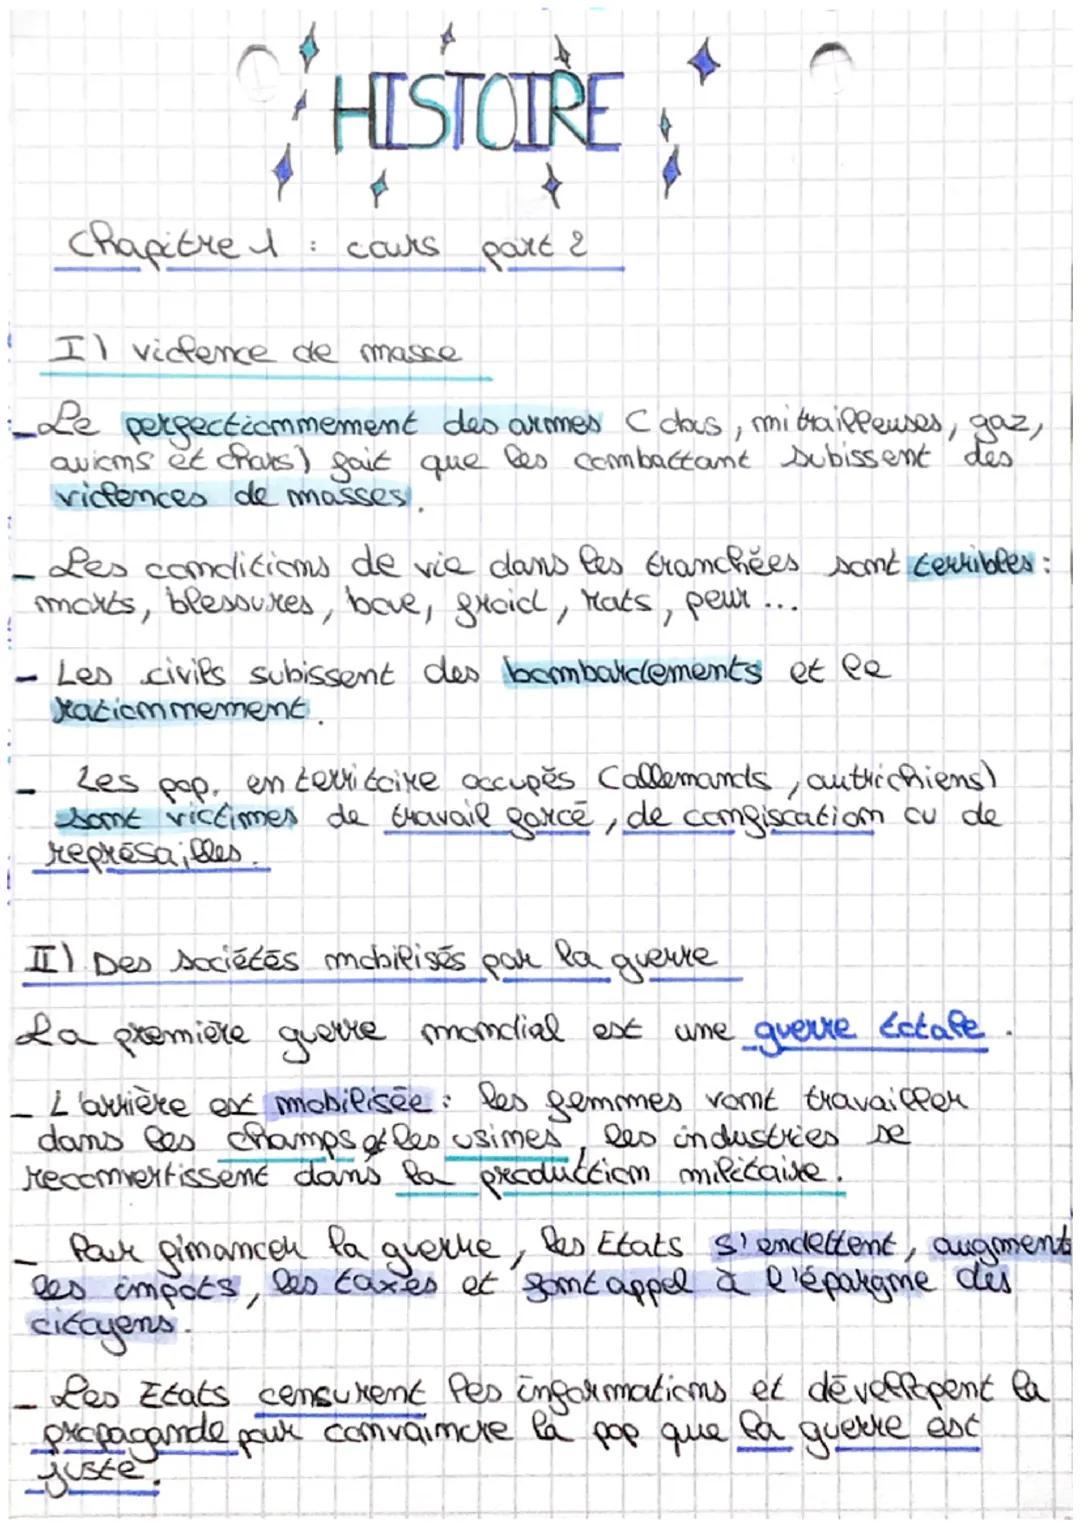 HISTOIRE
Chapitre 1 : cours part 2
I) violence de masse
- Le perfectionnnement des armes (obus, mitrailleuses, gaz,
avions et chars) fait que les combattant subissent des
violences de masses.
- Les conditions de vie dans les tranchées sont terribles :
morts, blessures, boue, froid, rats, peur...
- Les civils subissent des bombardements et le
rationnement.
- Les pop. en territoire occupés (allemands, autrichiens)
sont victimes de travail forcé, de confiscation ou de
représailles.
II) Des sociétés mobilisés par la guerre
La première guerre mondial est une guerre totale.
- L'arrière est mobilisée : les femmes vont travailler
dans les champs et les usines, les industries se
reconvertissent dans la production militaire.
- Pour financer la guerre, les Etats s'endettent, augment
les impots, les taxes et font appel à l'épargne des
citoyens.
- Les Etats censurent les informations et développent la
propagande pour convaincre la pop que la guerre est
juste.